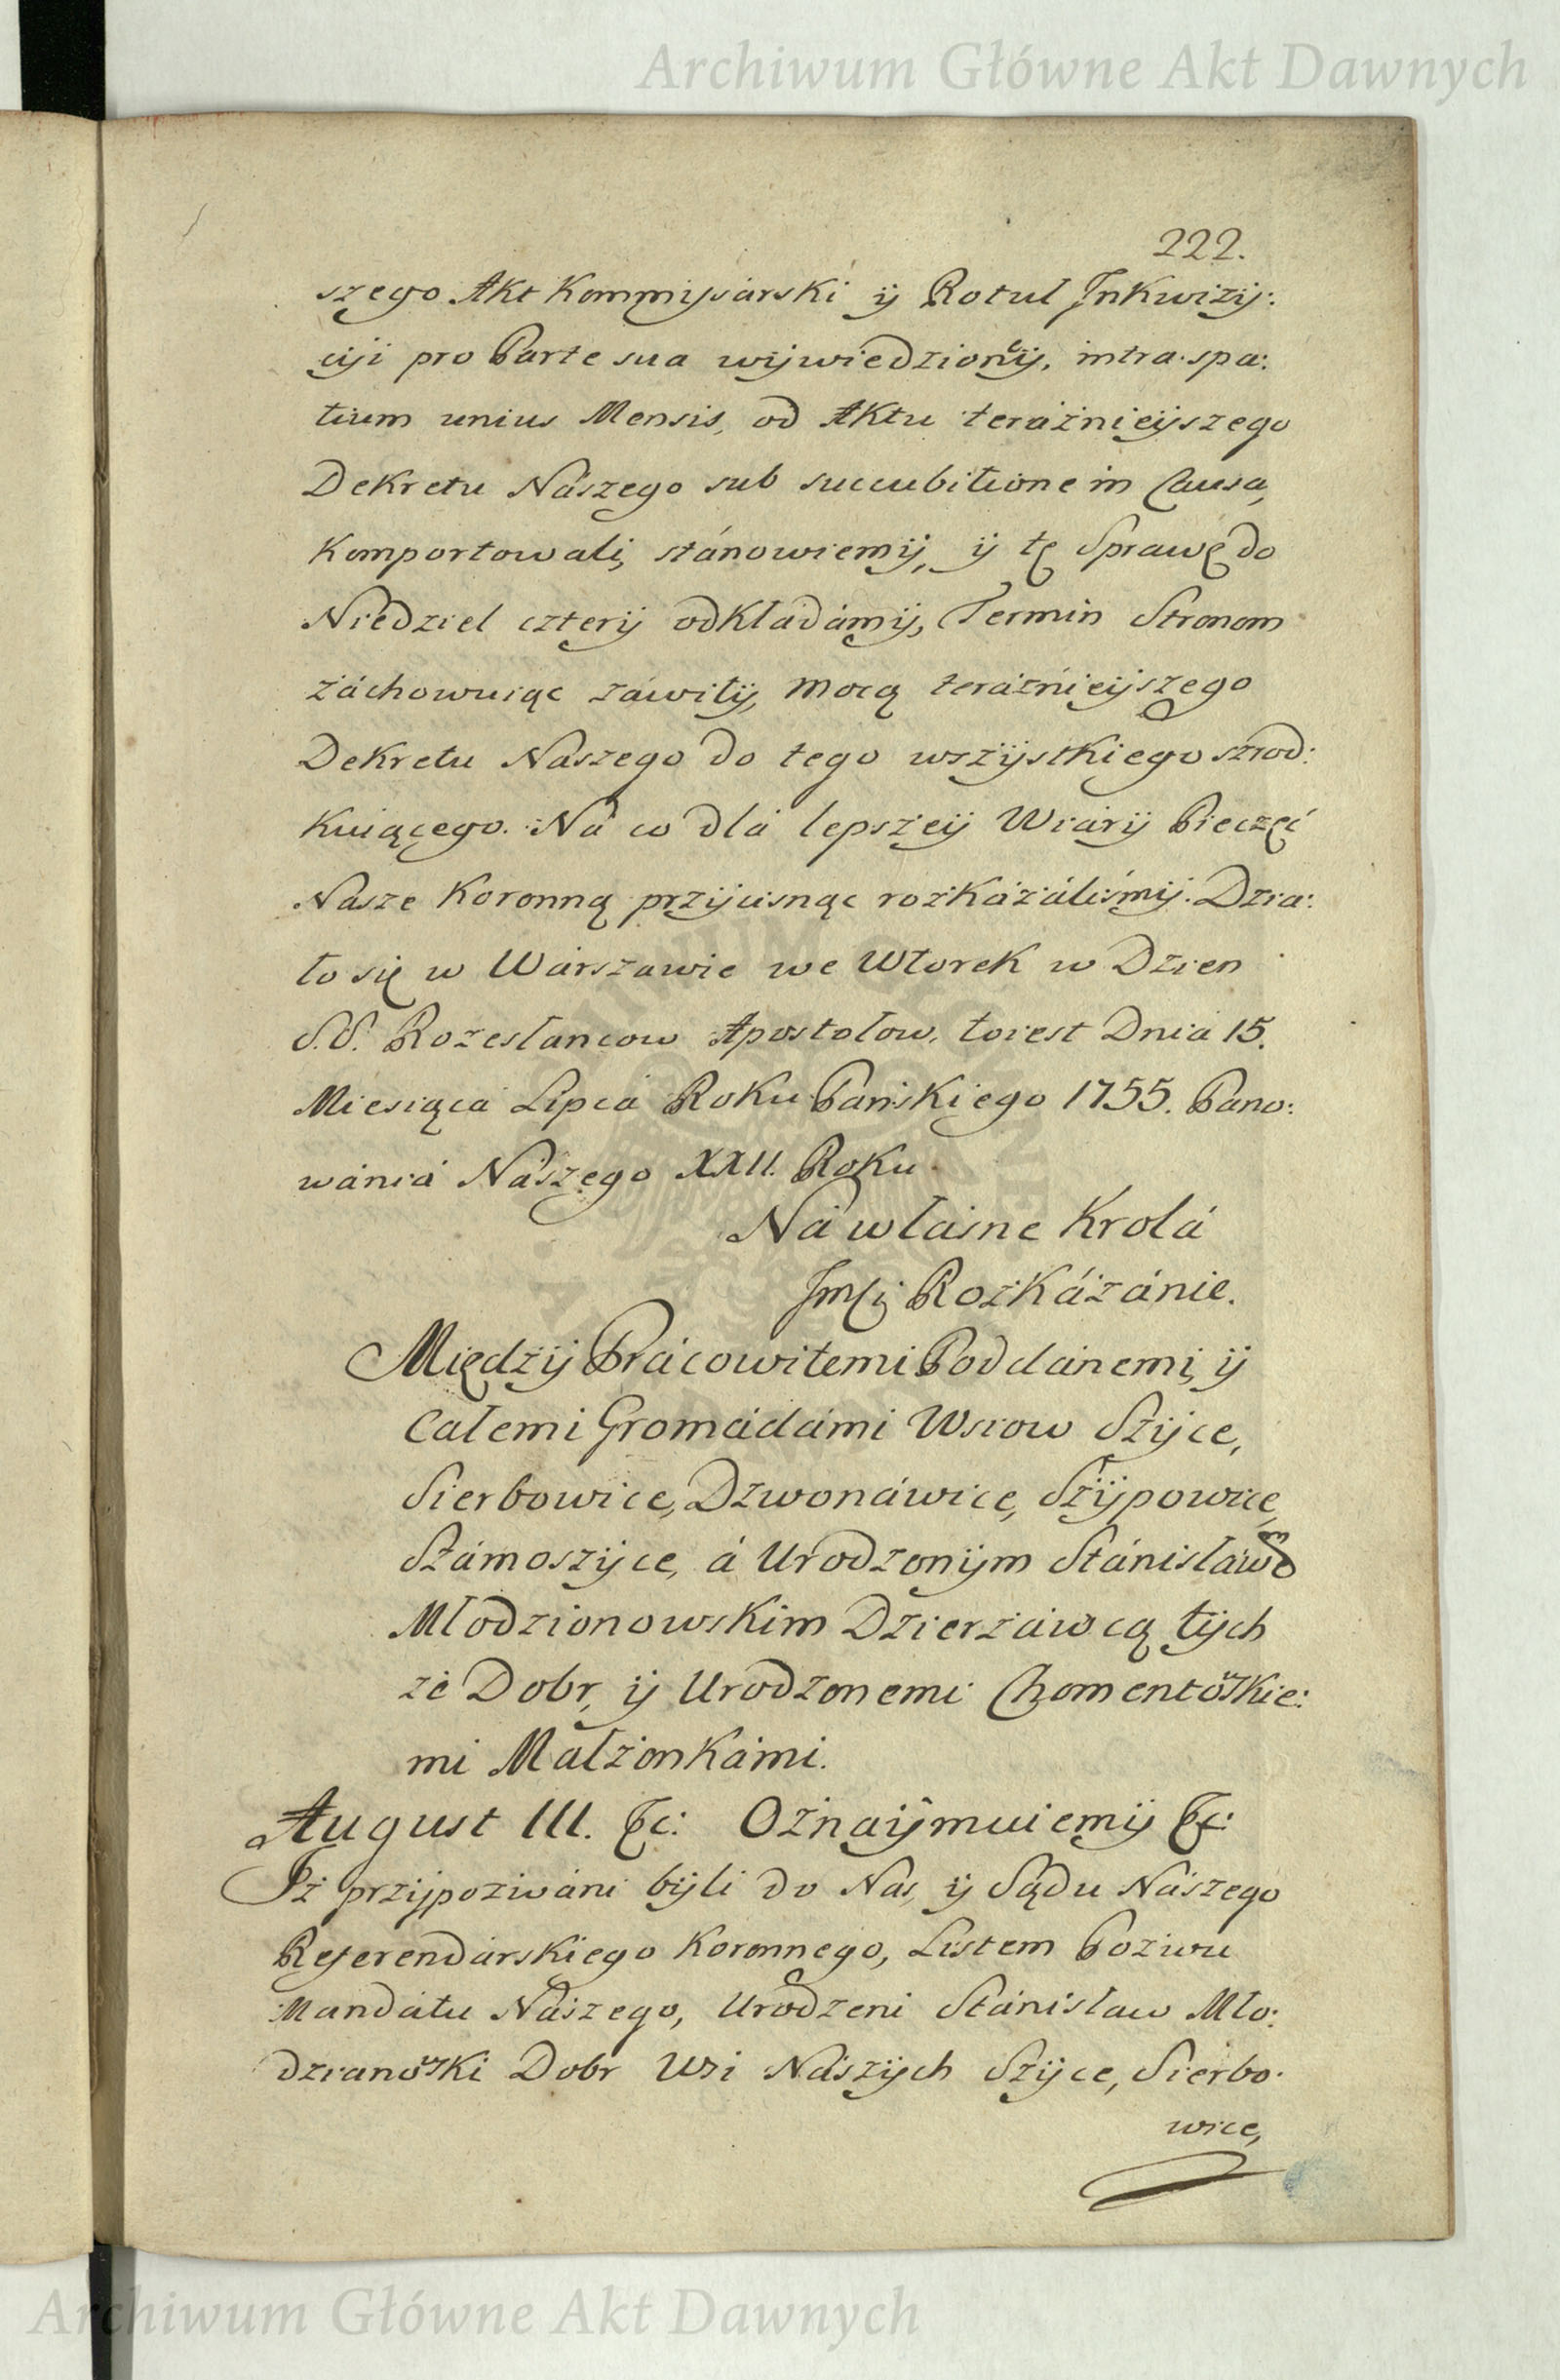 Archiwum Główne Akt Dawnych
222.
szego Akt Kommissarski ÿ Rotuł Inkwizÿ:
cÿi pro Parte sua wÿwiedzioneÿ, intra spa:
tium unius Mensis, od Aktu teráznieÿszego
Dekretu Nászego sub succubitione in Causa,
Komportowali, stánowiemÿ, ÿ tę Sprawę do
Niedziel czterÿ odkładámÿ, Termin Stronom
záchowuiąc záwitÿ, mocą teráznieÿszego
Dekretu Naszego do tego wszÿstkiego szrod:
kuiącego. Ná co dlá lepszeÿ Wiárÿ Pieczęć
Nasze Koronną przÿcisnąc rozkázáliśmÿ. Dzia:
ło się w Wárszawie we Wtorek w Dzien
S.S. Rozesłancow Apostołow, toiest Dniá 15.
Miesiącá Lipcá Roku Pańskiego 1755. Pano:
wániá Nászego XXII. Roku.
Ná własne Krolá
Jmści Rozkázánie.
Międzÿ Prácowitemi Poddánemi, ÿ
Całemi Gromádámi Wsiow Szÿce,
Sierbowice, Dzwonáwice, Szÿpowice,
Számoszÿce, á Urodzonÿm Stánisławem
Młodzionowskim Dzierzáwcą tÿch
ze Dobr, ÿ Urodzonemi Chomentowskie:
mi Małżonkámi.
August III. &c: Oznaÿmuiemÿ &c:
Iż przÿpozwáni bÿli do Nas, ÿ Sądu Nászego
Referendárskiego Koronnego, Listem Pozwu
Mandátu Nászego, Urodzeni Stánisław Mło:
dzianowski Dobr Wsi Nászÿch Szÿce, Sierbo:
wice,
Archiwum Główne Akt Dawnych